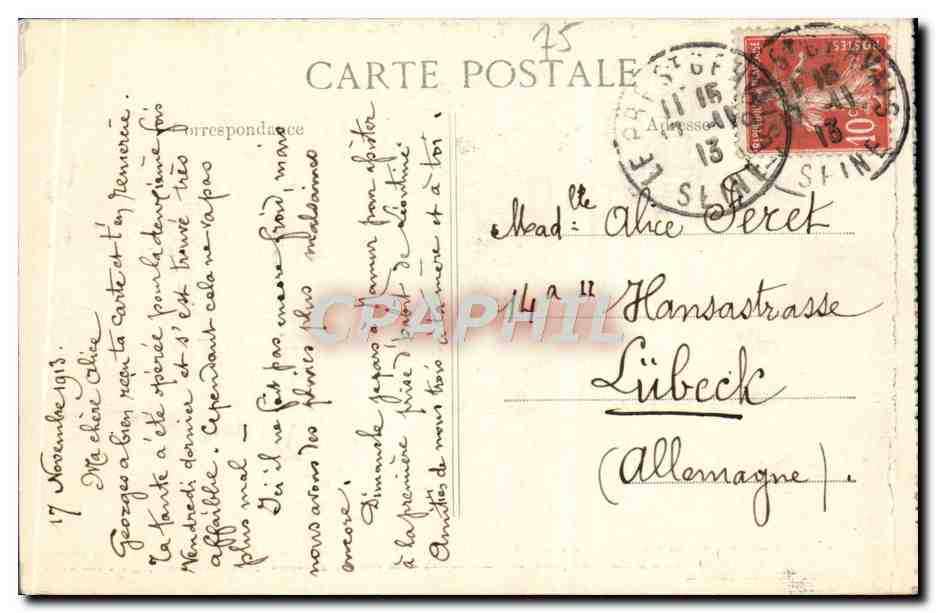 75
CARTE POSTALE
Correspondance
Adresse
POSTES
10
LE PRÉ ST GERVAIS
11 15
17 -11
13
SEINE
17 Novembre 1913.
Ma chère Alice
Georges a bien reçu ta carte et t'en remercie.
Ta tante a été opérée pour la deuxième fois
Vendredi dernier et s'est trouvé très
affaiblie. Cependant cela ne va pas
plus mal —
Ici il ne fait pas encore froid, mais
nous avons des pluies plus malsaines
encore.
Dimanche je pars à Namur pour assister
à la première prise d'habit de Léontine.
Amitiés de nous trois à ta mère et à toi.
Mad lle Alice Feret
14 a II Hansastrasse
Lübeck
(Allemagne).
CPAPHIL